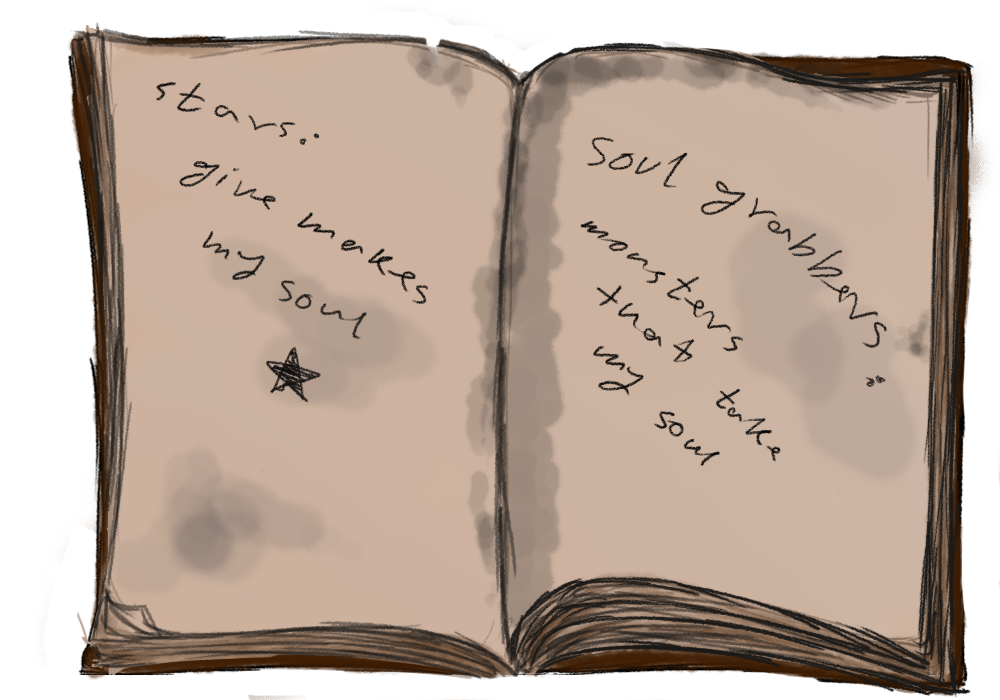 stars:
give makes
my soul
Soul grabbers:
monsters
that take
my soul